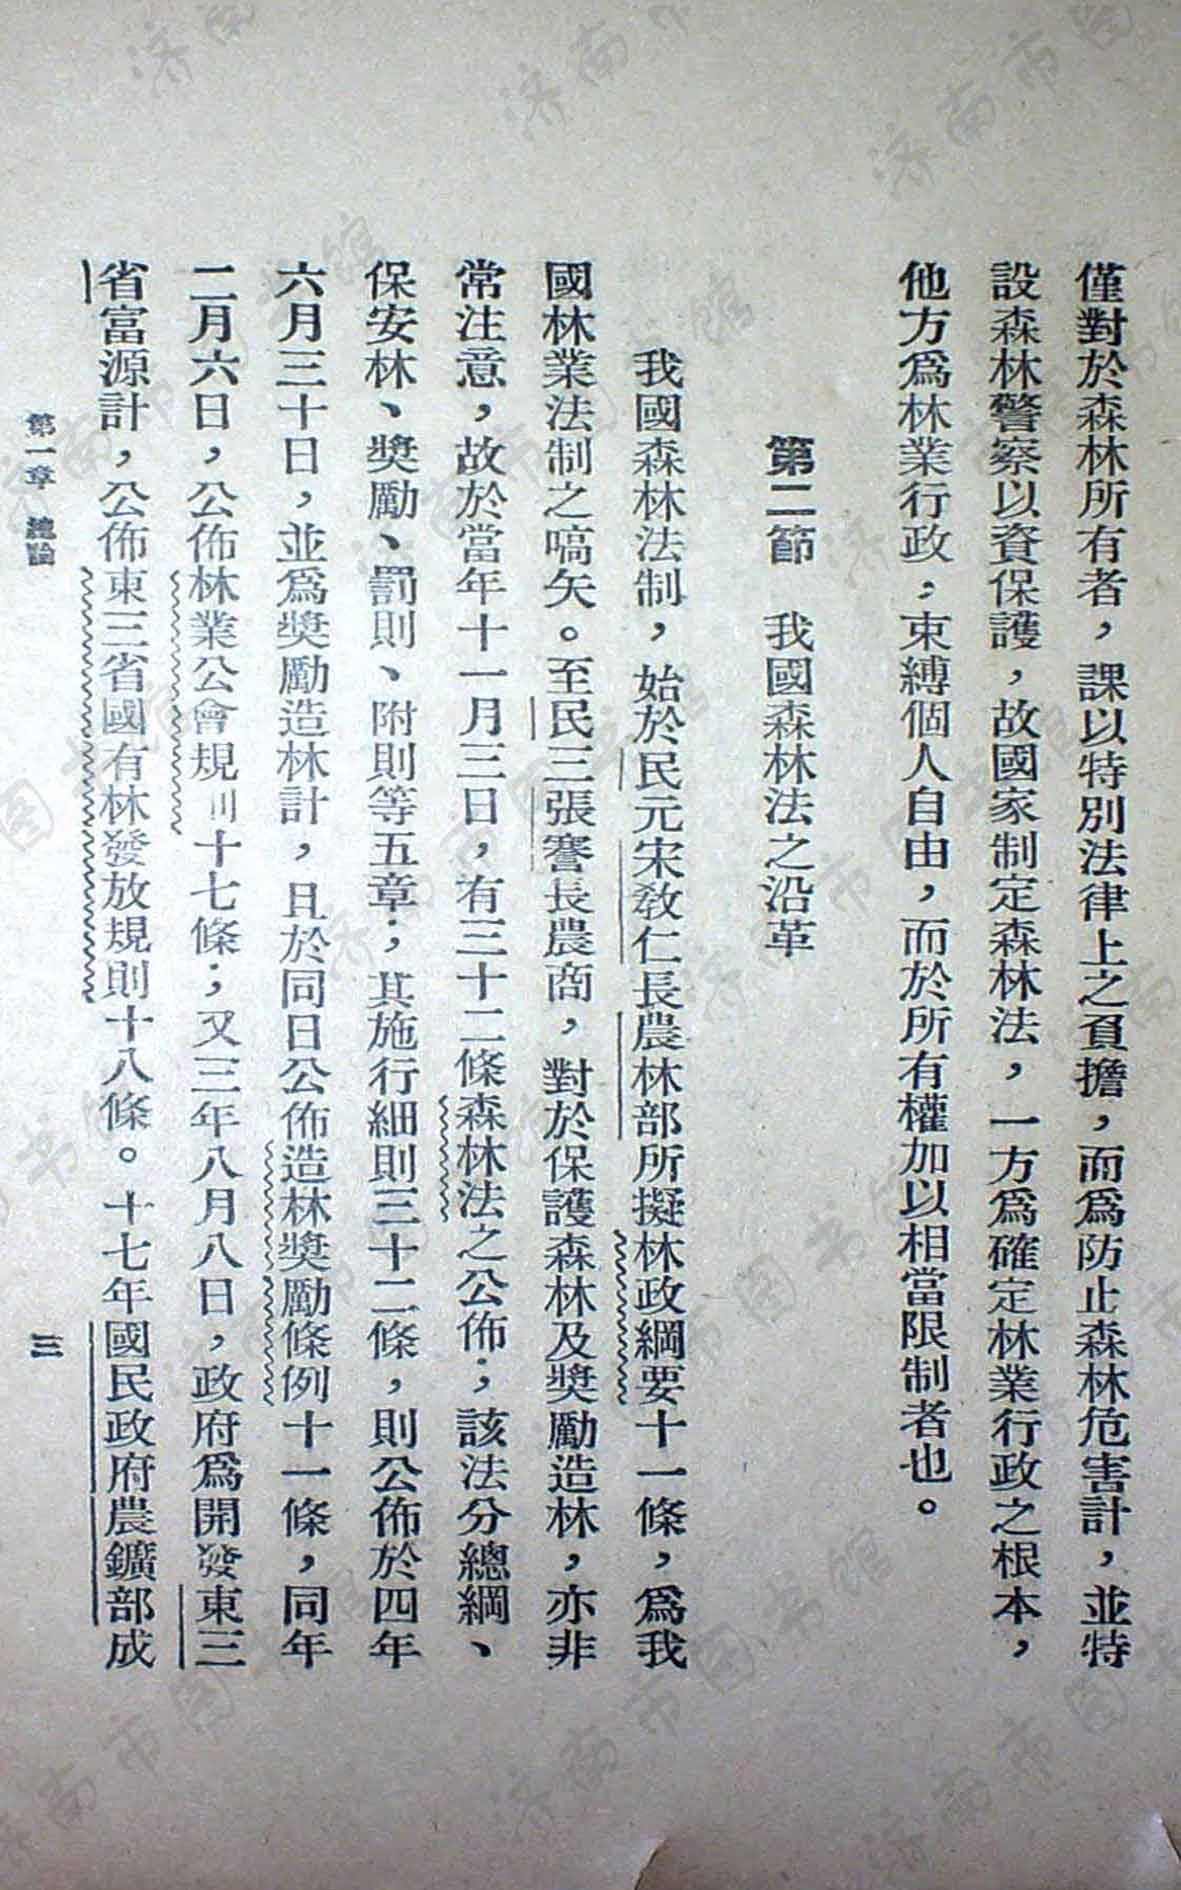 僅對於森林所有者，課以特別法律上之負擔，而爲防止森林危害計，並特
設森林警察以資保護，故國家制定森林法，一方爲確定林業行政之根本，
他方爲林業行政；束縛個人自由，而於所有權加以相當限制者也。
第二節　我國森林法之沿革
我國森林法制，始於民元宋敎仁長農林部所擬林政綱要十一條，爲我
國林業法制之嚆矢。至民三張謇長農商，對於保護森林及奬勵造林，亦非
常注意，故於當年十一月三日，有三十二條森林法之公佈；該法分總綱、
保安林、奬勵、罰則、附則等五章；其施行細則三十二條，則公佈於四年
六月三十日，並爲奬勵造林計，且於同日公佈造林奬勵條例十一條，同年
二月六日，公佈林業公會規則十七條；又三年八月八日，政府爲開發東三
省富源計，公佈東三省國有林發放規則十八條。十七年國民政府農鑛部成
第一章　總論
三
济南市图书馆